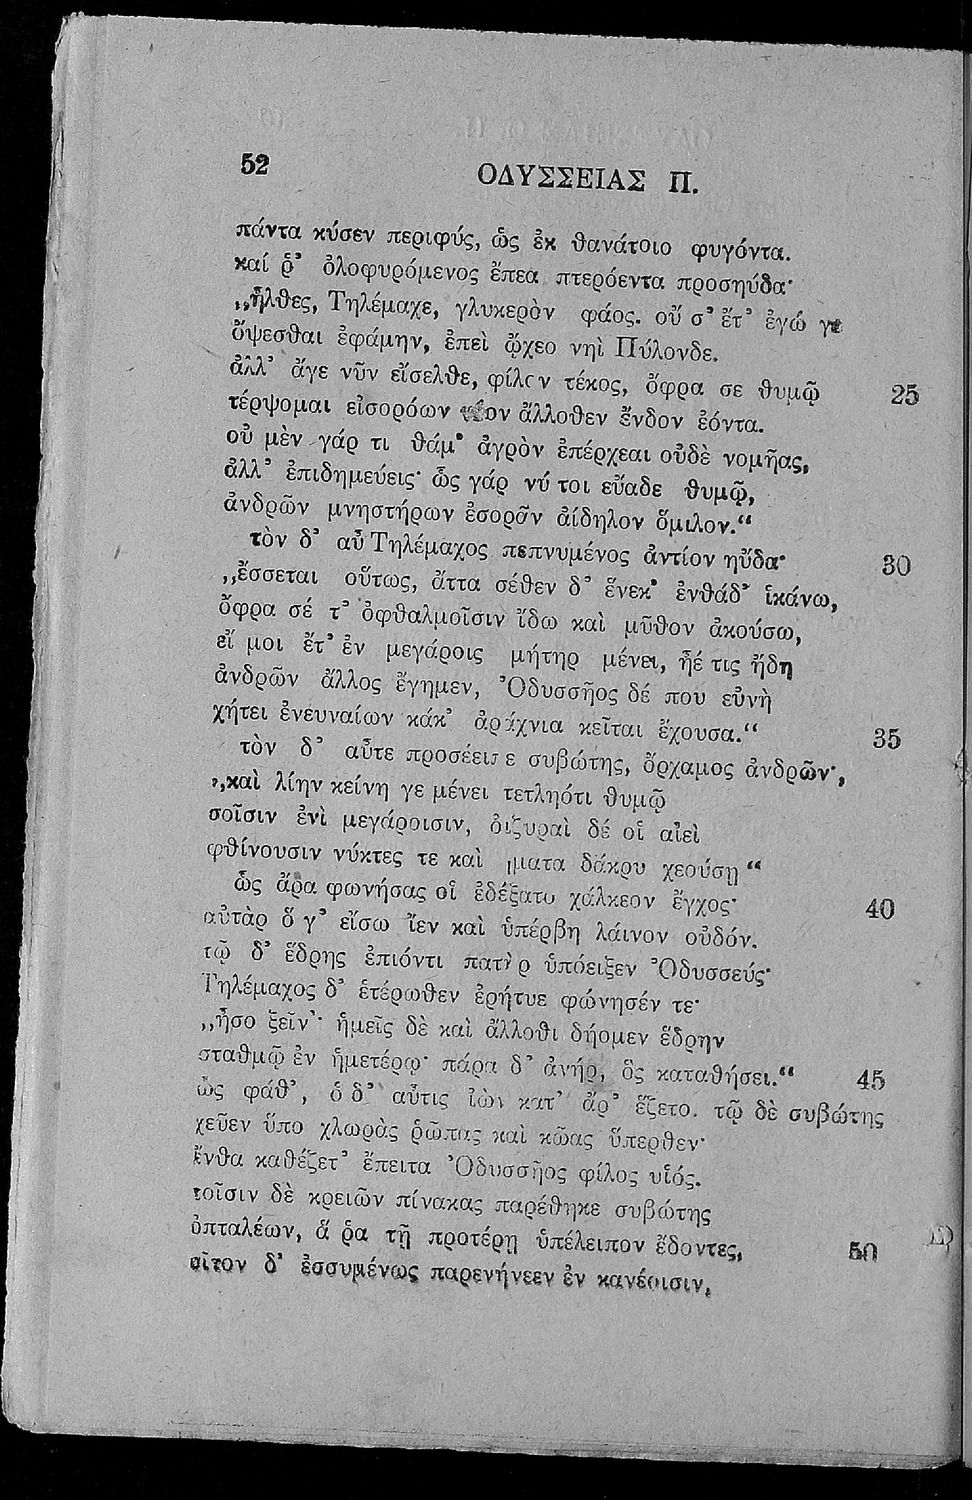 52
ΟΔΥΣΣΕΙΑΣ Π.
πάντα κύσεν περιφύς, ὡς ἐκ θανάτοιο φυγόντα.
καί ῥ' ὀλοφυρόμενος ἔπεα πτερόεντα προσηύδα·
„ἦλθες, Τηλέμαχε, γλυκερὸν φάος. οὔ σ' ἔτ' ἐγώ γε
ὄψεσθαι ἐφάμην, ἐπεὶ ᾤχεο νηὶ Πύλονδε.
ἀλλ' ἄγε νῦν εἴσελθε, φίλον τέκος, ὄφρα σε θυμῷ 25
τέρψομαι εἰσορόων νέον ἄλλοθεν ἔνδον ἐόντα.
οὐ μὲν γάρ τι θάμ' ἀγρὸν ἐπέρχεαι οὐδὲ νομῆας,
ἀλλ' ἐπιδημεύεις· ὣς γάρ νύ τοι εὔαδε θυμῷ,
ἀνδρῶν μνηστήρων ἐσορᾶν ἀίδηλον ὅμιλον.“
τὸν δ' αὖ Τηλέμαχος πεπνυμένος ἀντίον ηὔδα· 30
„ἔσσεται οὕτως, ἄττα σέθεν δ' ἕνεκ' ἐνθάδ' ἱκάνω,
ὄφρα σέ τ' ὀφθαλμοῖσιν ἴδω καὶ μῦθον ἀκούσω,
εἴ μοι ἔτ' ἐν μεγάροις μήτηρ μένει, ἦέ τις ἤδη
ἀνδρῶν ἄλλος ἔγημεν, Ὀδυσσῆος δέ που εὐνὴ
χήτει ἐνευναίων κάκ' ἀράχνια κεῖται ἔχουσα.“ 35
τὸν δ' αὖτε προσέειπε συβώτης, ὄρχαμος ἀνδρῶν·,
„καὶ λίην κείνη γε μένει τετληότι θυμῷ
σοῖσιν ἐνὶ μεγάροισιν, ὀιζυραὶ δέ οἱ αἰεὶ
φθίνουσιν νύκτες τε καὶ ἤματα δάκρυ χεούσῃ“
ὣς ἄρα φωνήσας οἱ ἐδέξατο χάλκεον ἔγχος· 40
αὐτὰρ ὅ γ' εἴσω ἴεν καὶ ὑπέρβη λάινον οὐδόν.
τῷ δ' ἕδρης ἐπιόντι πατὴρ ὑπόειξεν Ὀδυσσεύς·
Τηλέμαχος δ' ἑτέρωθεν ἐρήτυε φώνησέν τε·
„ἧσο ξεῖν'· ἡμεῖς δὲ καὶ ἄλλοθι δήομεν ἕδρην
σταθμῷ ἐν ἡμετέρῳ· πάρα δ' ἀνήρ, ὃς καταθήσει.“ 45
ὣς φάθ', ὁ δ' αὖτις ἰὼν κατ' ἄρ' ἕζετο. τῷ δὲ συβώτης
χεῦεν ὕπο χλωρὰς ῥῶπας καὶ κῶας ὕπερθεν·
ἔνθα καθέζετ' ἔπειτα Ὀδυσσῆος φίλος υἱός.
τοῖσιν δὲ κρειῶν πίνακας παρέθηκε συβώτης
ὀπταλέων, ἅ ῥα τῇ προτέρῃ ὑπέλειπον ἔδοντες, 50
σῖτον δ' ἐσσυμένως παρενήνεεν ἐν κανέοισιν,